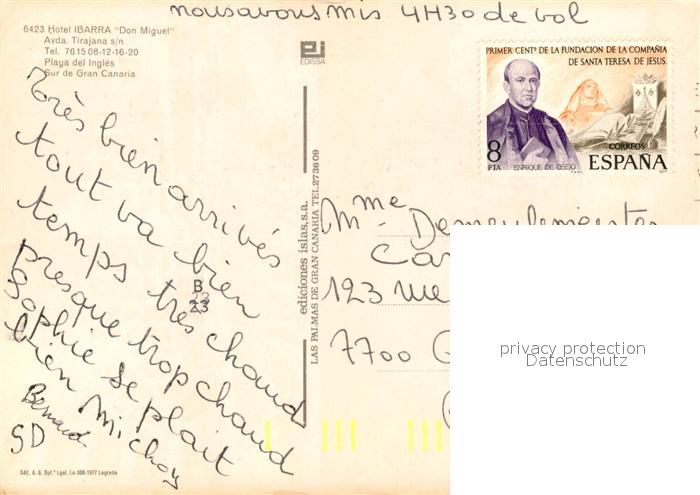 nous avons mis 4H30 de vol
6423 Hotel IBARRA "Don Miguel"
Avda. Tirajana s/n
Tel. 7615 08-12-16-20
Playa del Inglés
Sur de Gran Canaria
EDISSA
PRIMER CENTº DE LA FUNDACION DE LA COMPAÑIA
DE SANTA TERESA DE JESUS.
8
PTA
ENRIQUE DE OSSO
CORREOS
ESPAÑA
Très bien arrivés
tout va bien
temps tres chaud
presque trop chaud
Sophie se plait
bien Michou
Bernard
SD
B
23
ediciones islas, s.a.
LAS PALMAS DE GRAN CANARIA TEL. 273609
Mme Demeulemeester
123
7700
privacy protection
Datenschutz
SAE, A. G. Dpt.º Lgal. Lo-300-1977 Logroño